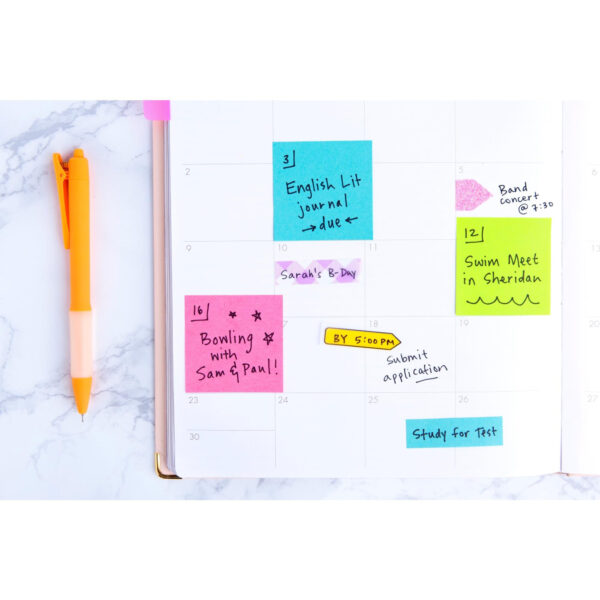 2
3
English Lit
journal
→due←
5
Band
concert
@ 7:30
9
10
11
12
Swim Meet
in Sheridan
Sarah's B-Day
16
Bowling
with
Sam & Paul!
17
BY 5:00PM
18
19
Submit
application
23
24
25
26
Study for Test
30